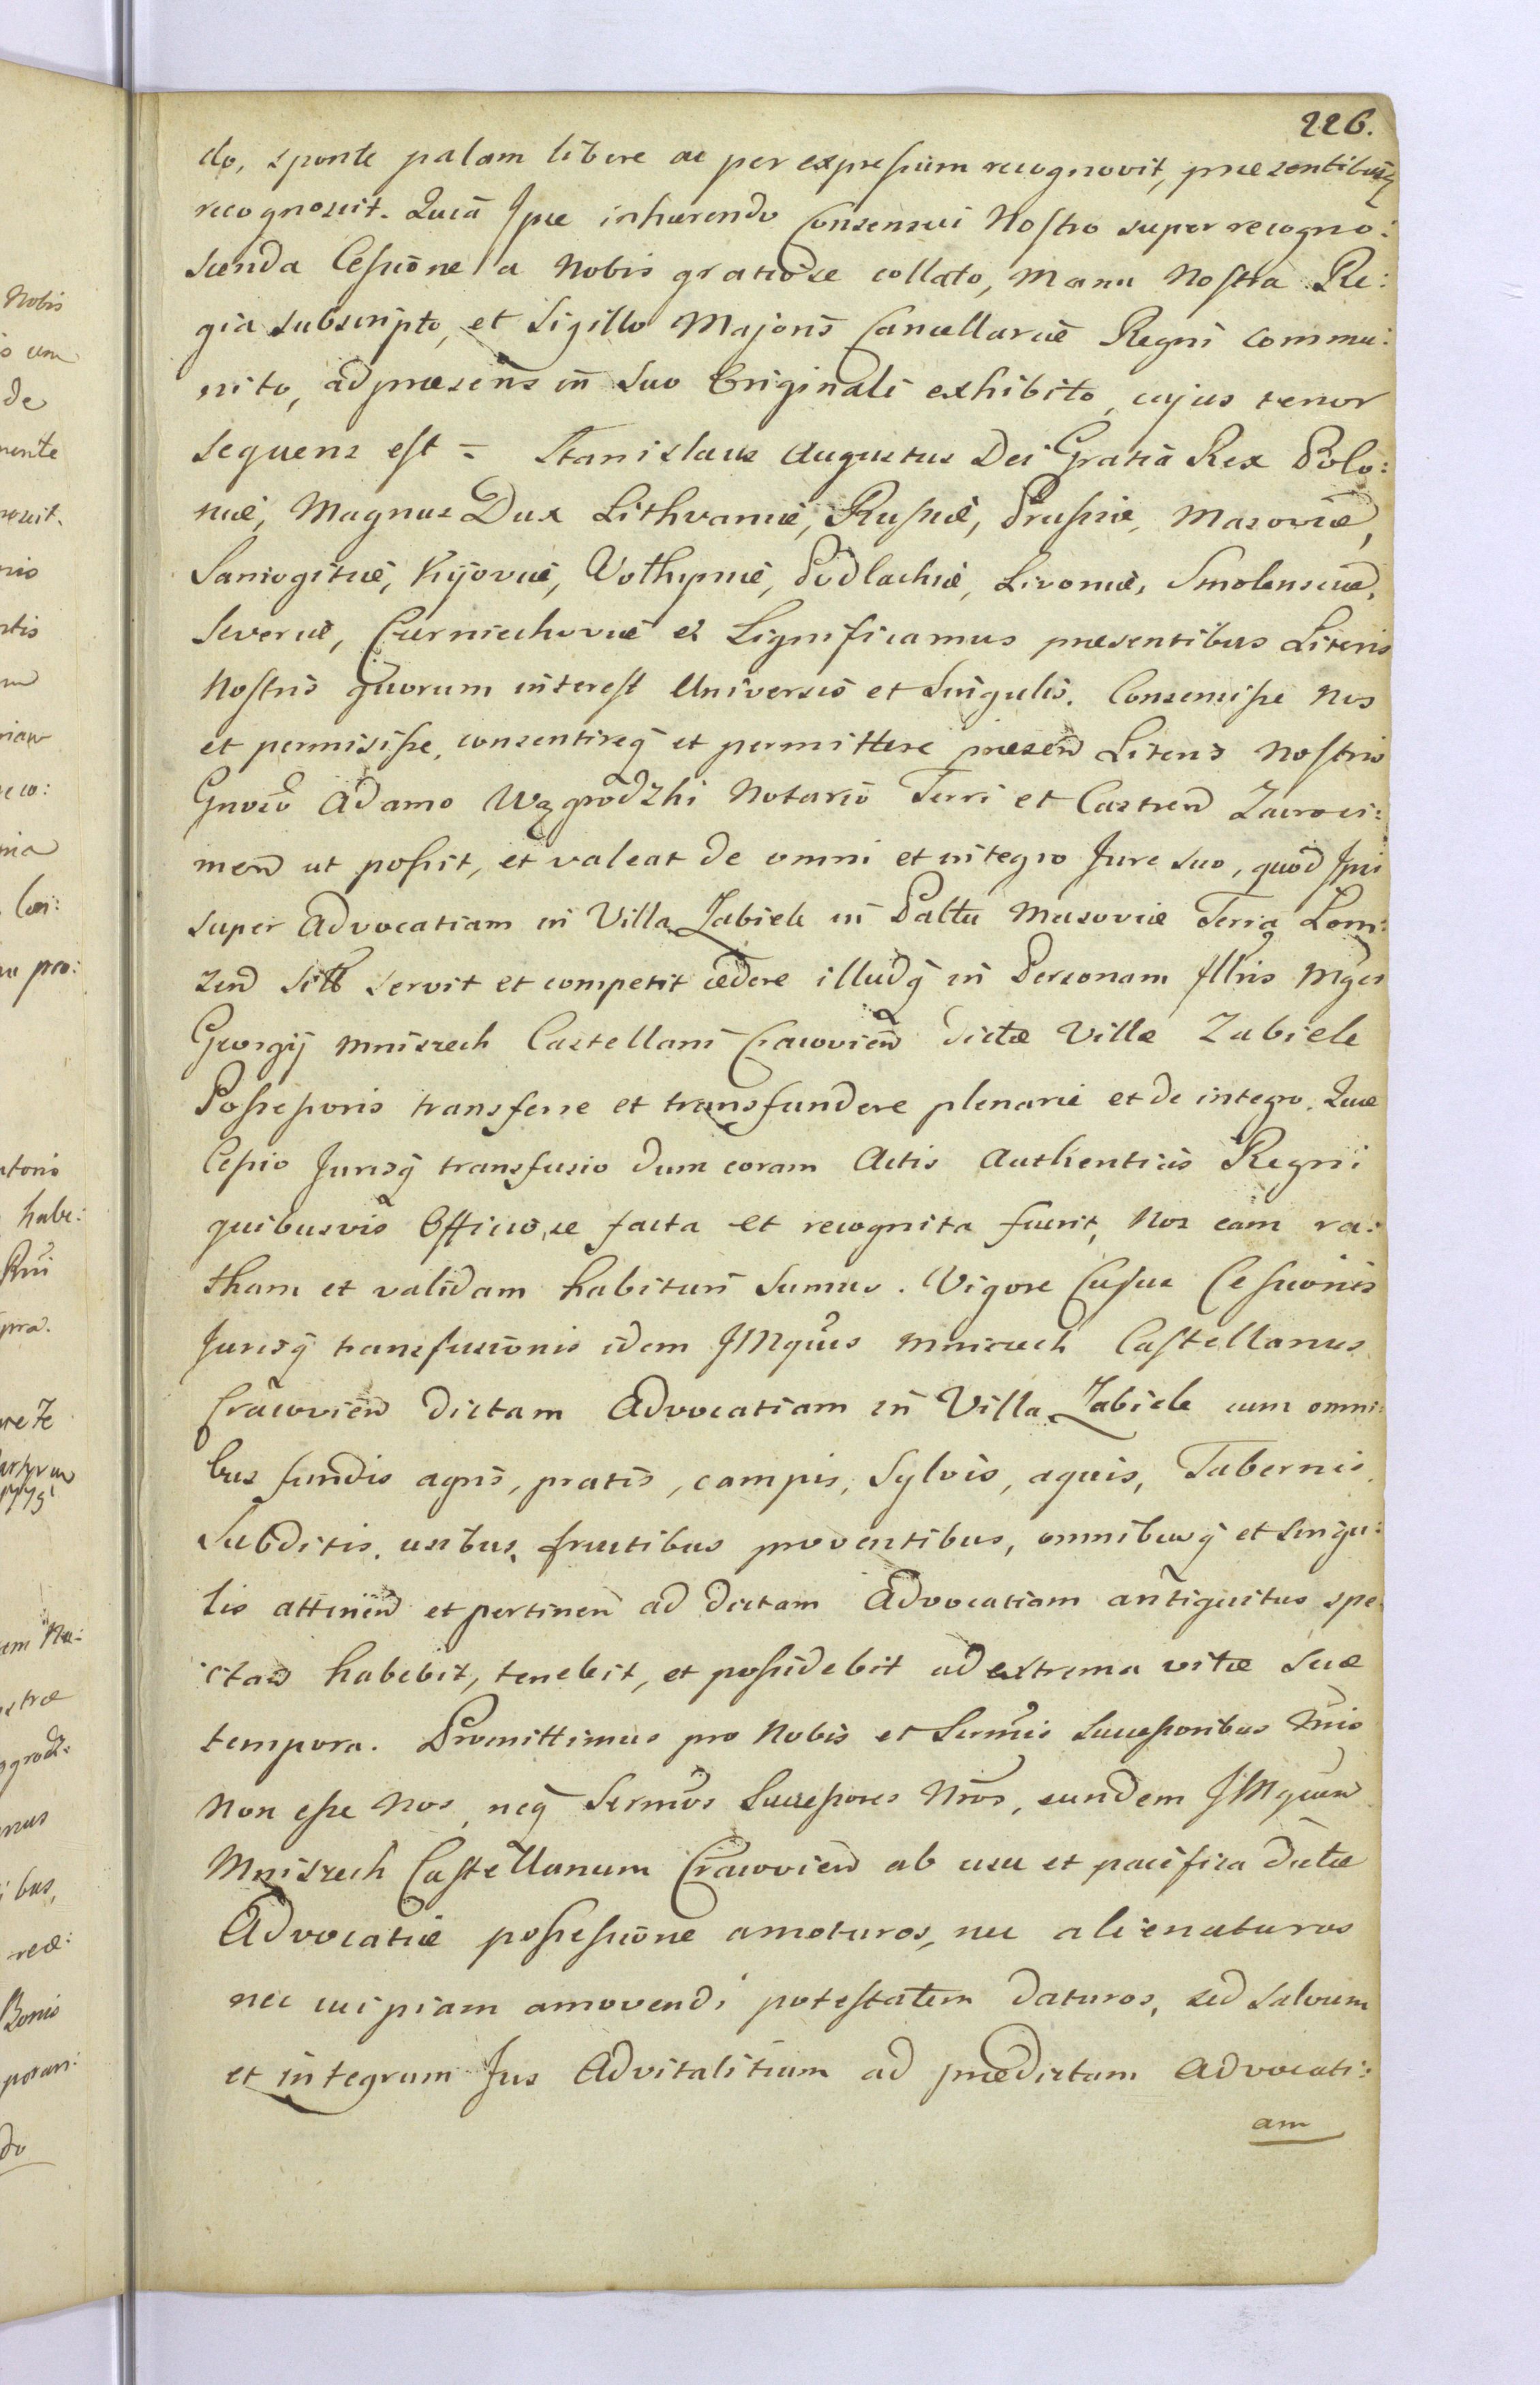 226.
do, sponte palam libere ac per expressum recognovit, præsentibusq
recognoscit. Quia Ipse inhærendo Consensui Nostro super recogno:
scenda Cessione a Nobis gratiose collato, Manu Nostra Re:
gia subscripto, et Sigillo Majoris Cancellariæ Regni commu:
nito, ad præsens in suo Originali exhibito, cujus tenor
sequens est = Stanislaus Augustus Dei Gratia Rex Polo:
niæ, Magnus Dux Lithvaniæ, Russiæ, Prussiæ, Masoviæ,
Samogitiæ, Kijoviæ, Wolhyniæ, Podlachiæ, Livoniæ, Smolensciæ,
Severiæ, Czerniechoviæ et Significamus præsentibus Literis
Nostris quorum interest Universis et Singulis. Consensisse Nos
et permisisse, consentireq et permittere præsen Literis Nostris
Gnoso Adamo Wzgrodzki Notario Terri et Castren Zacroci:
men ut possit, et valeat de omni et integro Jure suo, quod Ipsi
super Advocatiam in Villa Zabiele in Paltu Masoviæ Terra Lom:
zen servit et competit cædere illudq in Personam Illris Mgci
Georgij Mniszech Castellani Cracovien dictæ Villæ Zabiele
Possessoris transferre et transfundere plenarie et de integro. Quæ
Cessio Jurisq transfusio dum coram Actis Authenticis Regni
quibusvis Officiose facta et recognita fuerit, Nos eam ra:
tham et validam habituri sumus. Vigore Cujus Cessionis
Jurisq transfusionis idem JMgcus Mniszech Castellanus
Cracovien dictam Advocatiam in Villa Zabiele cum omni:
bus fundis agris, pratis, campis, Sylvis, aquis, Tabernis,
Subditis, usibus, fructibus proventibus, omnibusq et singu:
lis attinen et pertinen ad dictam Advocatiam antiquitus spe
ctan habebit, tenebit, et possidebit ad extrema vitæ suæ
tempora. Promittimus pro Nobis et Sermis Successoribus Nris
Non esse Nos, neq Sermos Successores Nros, eundem JMgcum
Mniszech Castellanum Cracovien ab usu et pacifica dictæ
Advocatiæ possessione amoturos, nec alienaturos
nec cuipiam amovendi potestatem daturos, sed salvum
et integrum Jus Advitalitium ad prædictam Advocati:
am